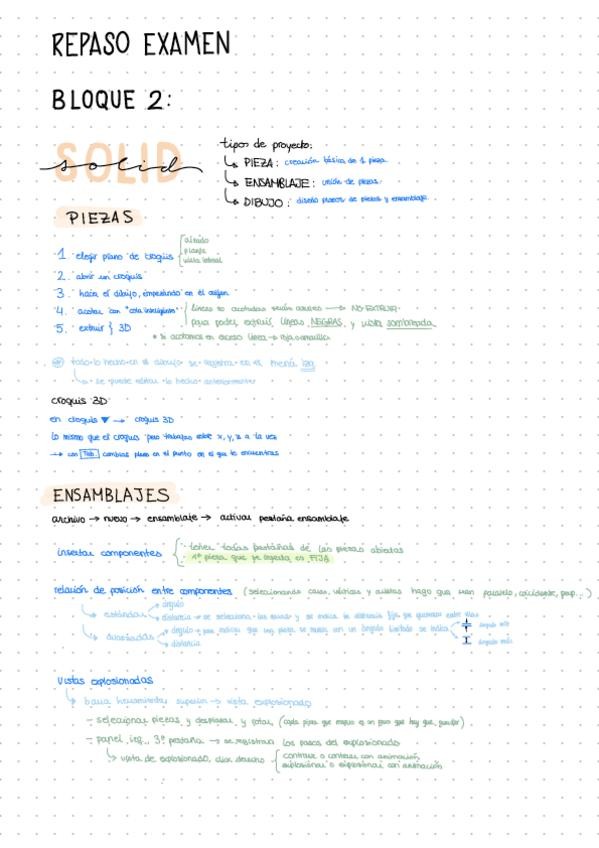 REPASO EXAMEN
BLOQUE 2:
SOLID
solid
tipos de proyecto:
PIEZA: creación básica de 1 pieza
ENSAMBLAJE: unión de piezas
DIBUJO: diseño planos de piezas y ensamblaje
PIEZAS
1. elegir plano de croquis
alzado
planta
vista lateral
2. abrir un croquis
3. hacer el dibujo, empezando en el origen
4. acotar con "cota inteligente"
líneas no acotadas serán azules → NO EXTRUIR
5. extruir } 3D
para poder extruir, líneas NEGRAS y vista sombreada
* si acotamos en exceso línea → roja o amarilla
todo lo hecho en el dibujo se registra en el menú izq
se puede editar lo hecho anteriormente
croquis 3D
en croquis ▼ → croquis 3D
lo mismo que el croquis pero trabajas sobre x, y, z a la vez
→ con Tab cambias plano en el punto en el que te encuentras
ENSAMBLAJES
archivo → nuevo → ensamblaje → activar pestaña ensamblaje
insertar componentes
- tener todas pestañas de las piezas abiertas
- 1ª pieza que se inserta es FIJA
relación de posición entre componentes (seleccionando caras, vértices y aristas hago que sean paralelo, coincidente, perp...)
estándar
ángulo
distancia → se selecciona las caras y se indica la distancia fija que queremos entre ellas
avanzadas
ángulo → para indicar que una pieza se mueva con un ángulo limitado se indica
ángulo máx
ángulo mín
distancia
vistas explosionadas
barra herramientas superior → vista explosionada
- seleccionar piezas y desplazar y rotar (cada pieza que muevo es un paso que hay que guardar)
- panel izq., 3ª pestaña → se registran los pasos del explosionado
vista de explosionado, click derecho
contraer o contraer con animación
explosionar o explosionar con animación